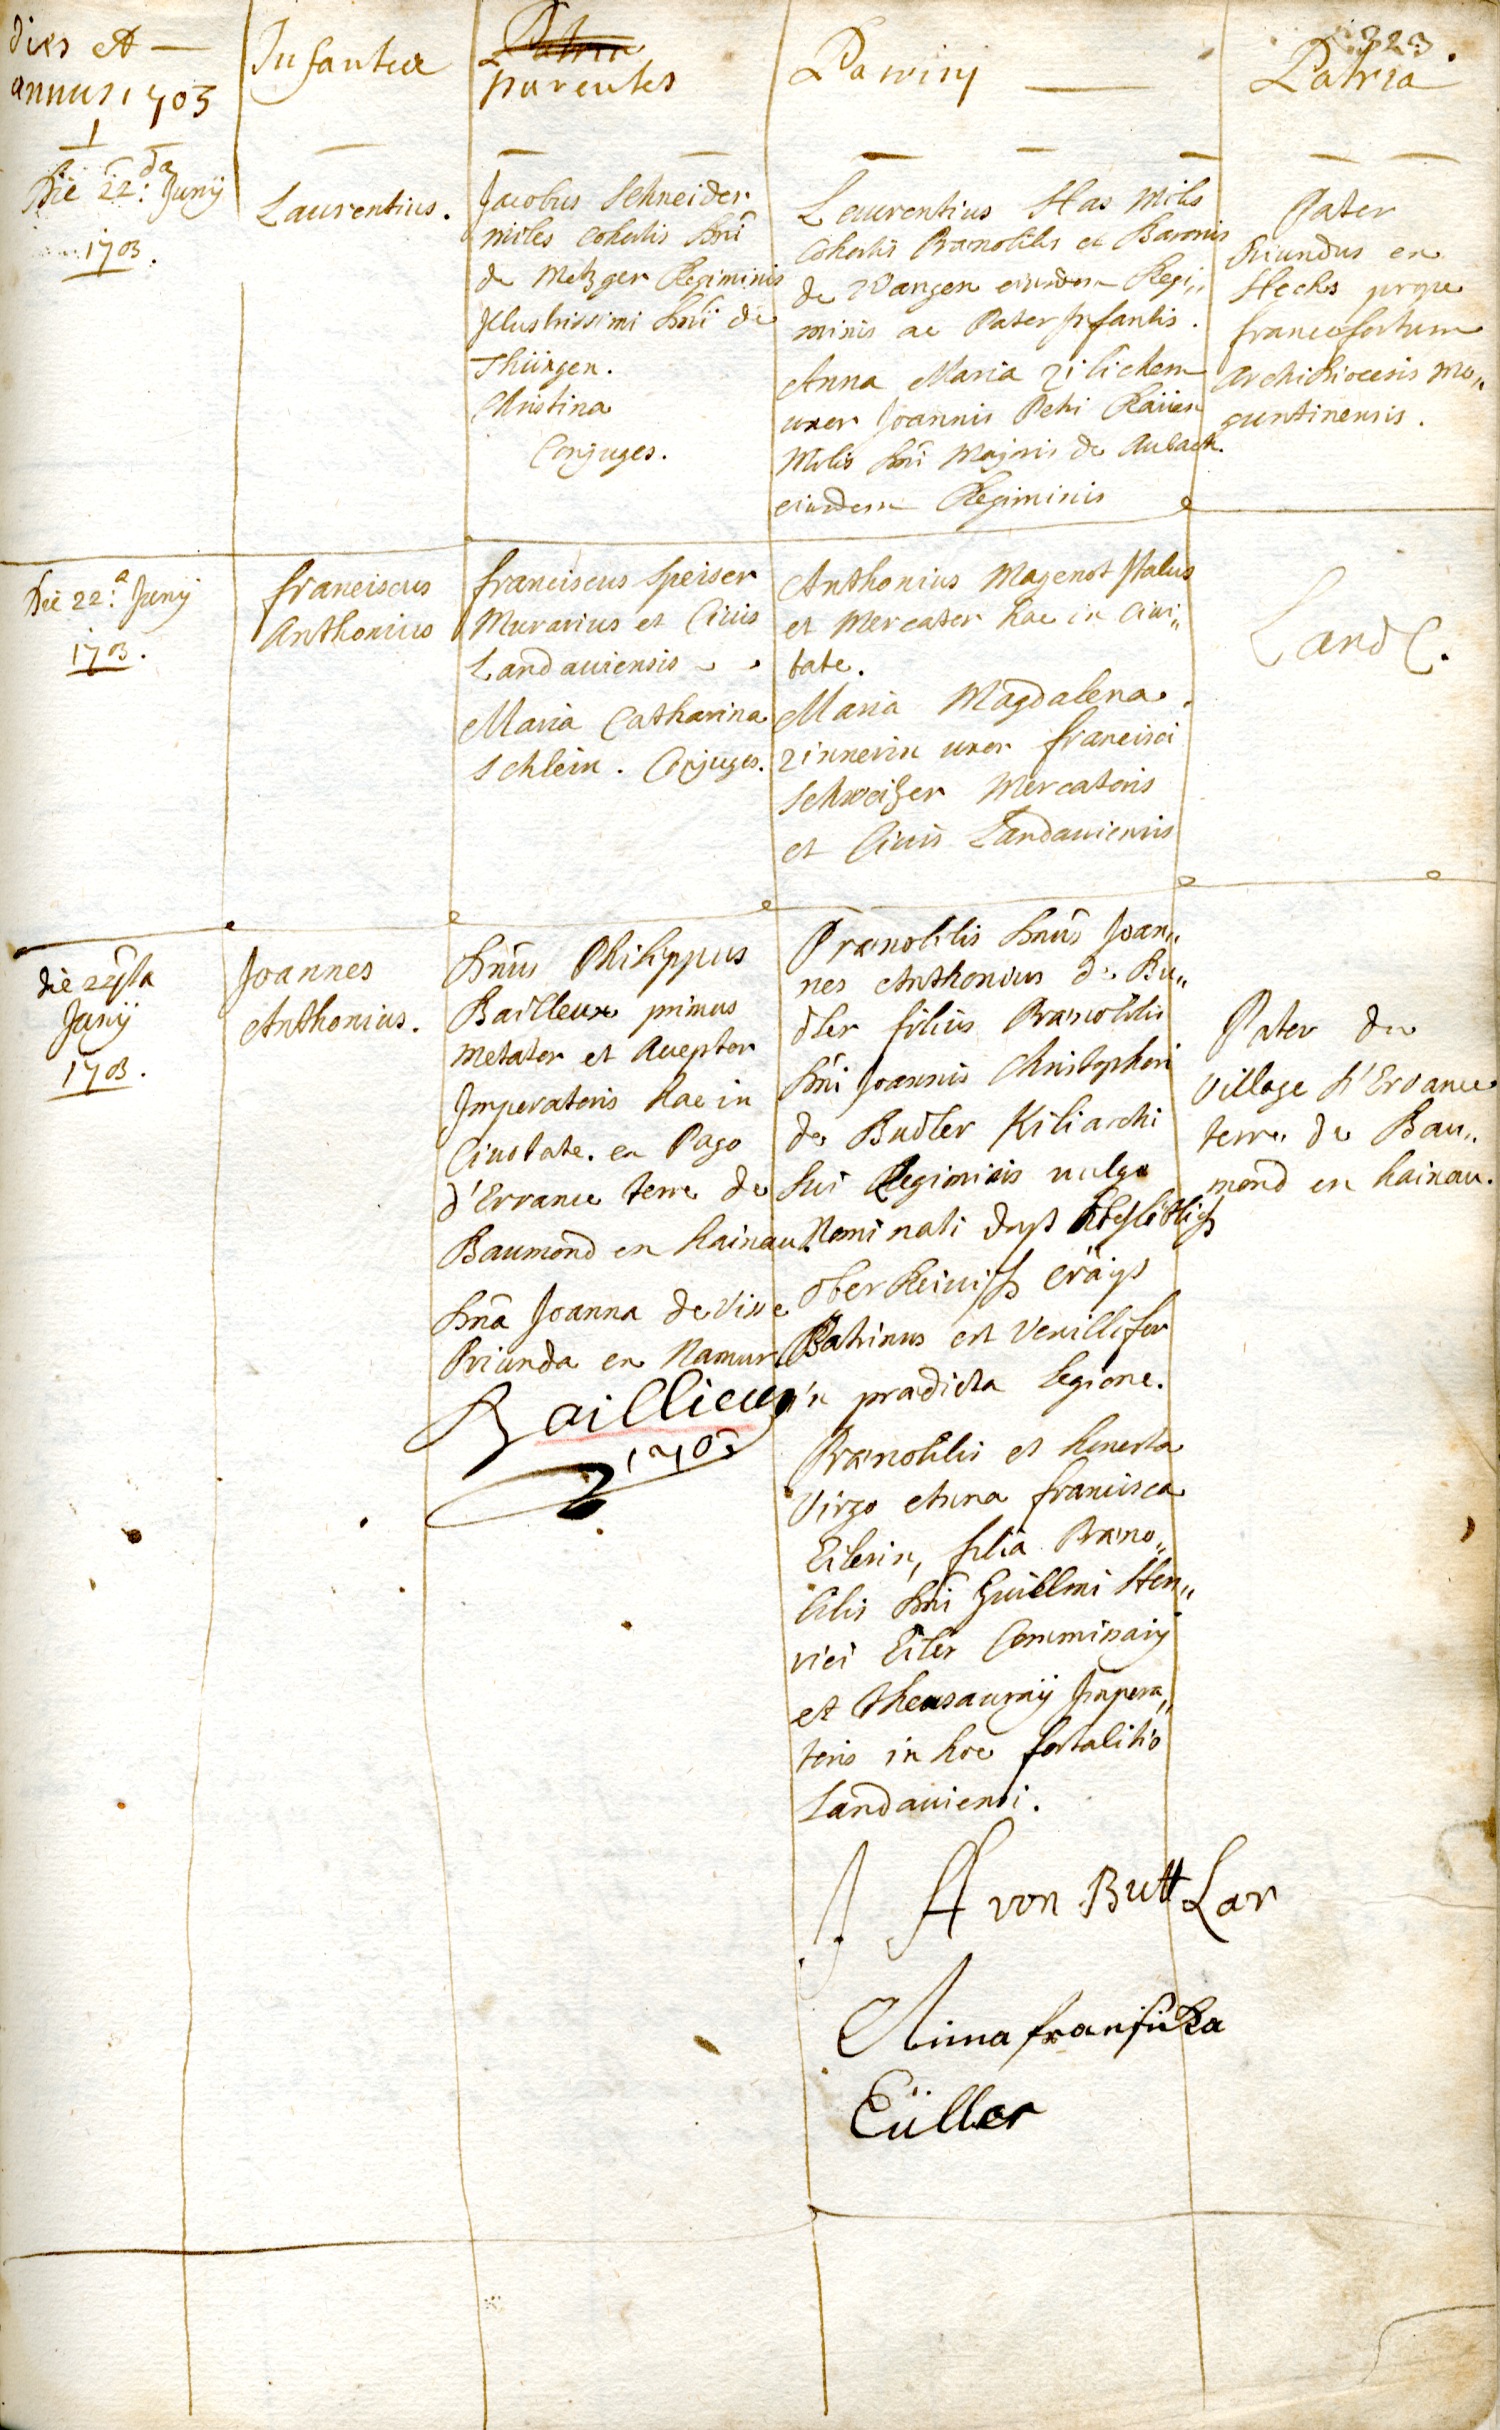 323.
dies et
annus 1703
Infantia
Patria
parentes
Patrini
Patria
Die 22:da Junÿ
1703.
Laurentius.
Jacobus Schneider
miles cohortis Dni
de Metzger Regiminis
Illustrissimi Dni de
Thüngen.
Christina
Conjuges.
Laurentius Has Miles
Cohortis Prænobilis et Baronis
de Wangen eiusdem Regi„
minis ac Pater Infantis.
Anna Maria
uxor Joannis Petri
Milis Dni Majoris de Aubach
eiusdem Regiminis
Pater
Oriundus ex
prope
francofortum
Archidiocesis Mo„
guntinensis.
Die 22:a Junÿ
1703.
franciscus
Anthonius
franciscus Speiser
Murarius et Civis
Landaviensis
Maria Catharina
Schlein. Conjuges.
Anthonius Magenot Italus
et Mercator hac in Civi„
tate.
Maria Magdalena
Zinnerin uxor francisci
Schweitzer Mercatoris
et Civis Landaviensis
Land C.
die
Junÿ
1703.
Joannes
Anthonius.
Dnus Philippus
Bailleux primus
metator et Acceptor
Imperatoris hac in
Civitate. ex Pago
d'Errance terre de
Baumond en hainau.
Dna Joanna de Visse
Oriunda ex Namur
Baillieux
1703
Prænobilis Dnus Joan„
nes Anthonius de Bu„
dler filius Prænobilis
Dni Joannis Christophori
de Budler Kiliarchi
Sui Regiminis vulgo
Nominati
Patrinus est Vexillifer
in prædicta legione.
Prænobilis et honesta
Virgo Anna francisca
Eilerin, filia Præno„
bilis Dni Guillmi Hen„
rici Eiler Commissarÿ
et Thesaurarÿ Impera„
toris in hoc fortalitio
Landaviensi.
J A von ButtLar
Anna fransiska
Eüller
Pater du
village d'Ervance
terre de Bau„
mond en hainau.